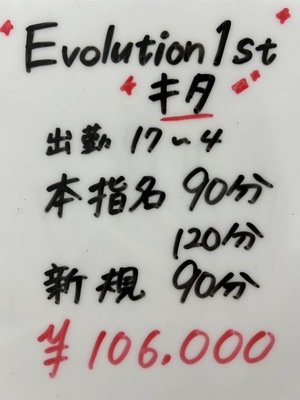 Evolution 1st
キタ
出勤 17〜4
本指名 90分
120分
新規 90分
¥106.000